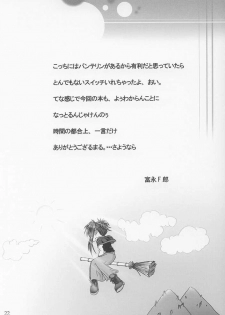 こっちにはバンテリンがあるから有利だと思っていたら
とんでもないスイッチいれちゃったよ、おい。
てな感じで今回の本も、よぅわからんことに
なっとるんじゃけんのぅ
時間の都合上、一言だけ
ありがとうございまする。…さようなら
富永F.郎
22